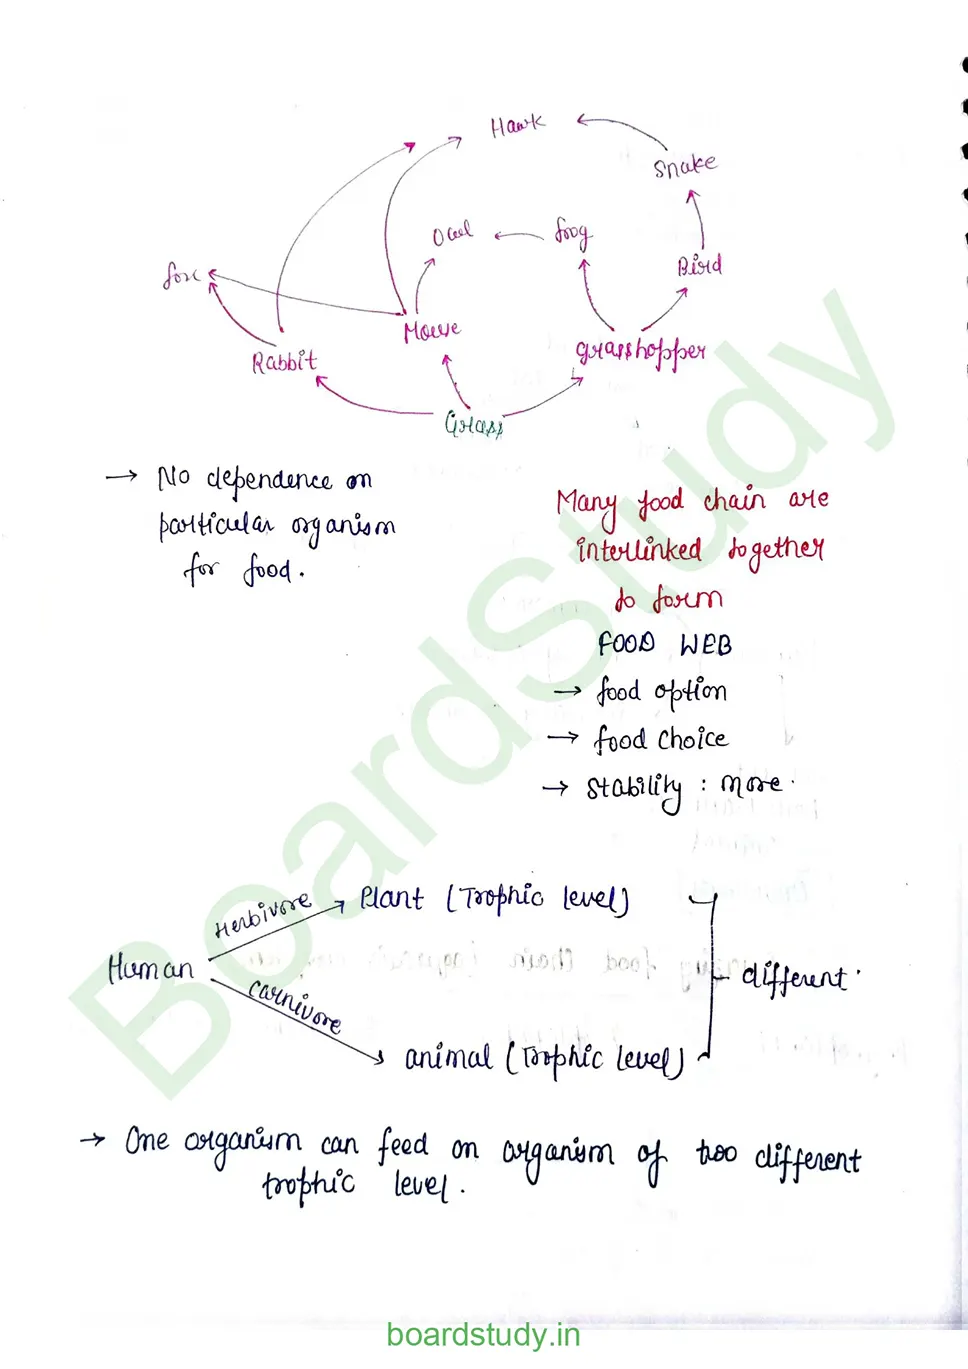 Hawk
Snake
Owl
frog
Bird
fox
Mouse
Rabbit
grasshopper
Grass
→ No dependence on
particular organism
for food.
Many food chain are
interlinked together
to form
FOOD WEB
→ food option
→ food choice
→ Stability : more.
Herbivore
Plant (Trophic level)
Human
different.
carnivore
animal (Trophic level)
→ One organism can feed on organism of two different
trophic level.
BoardStudy
boardstudy.in